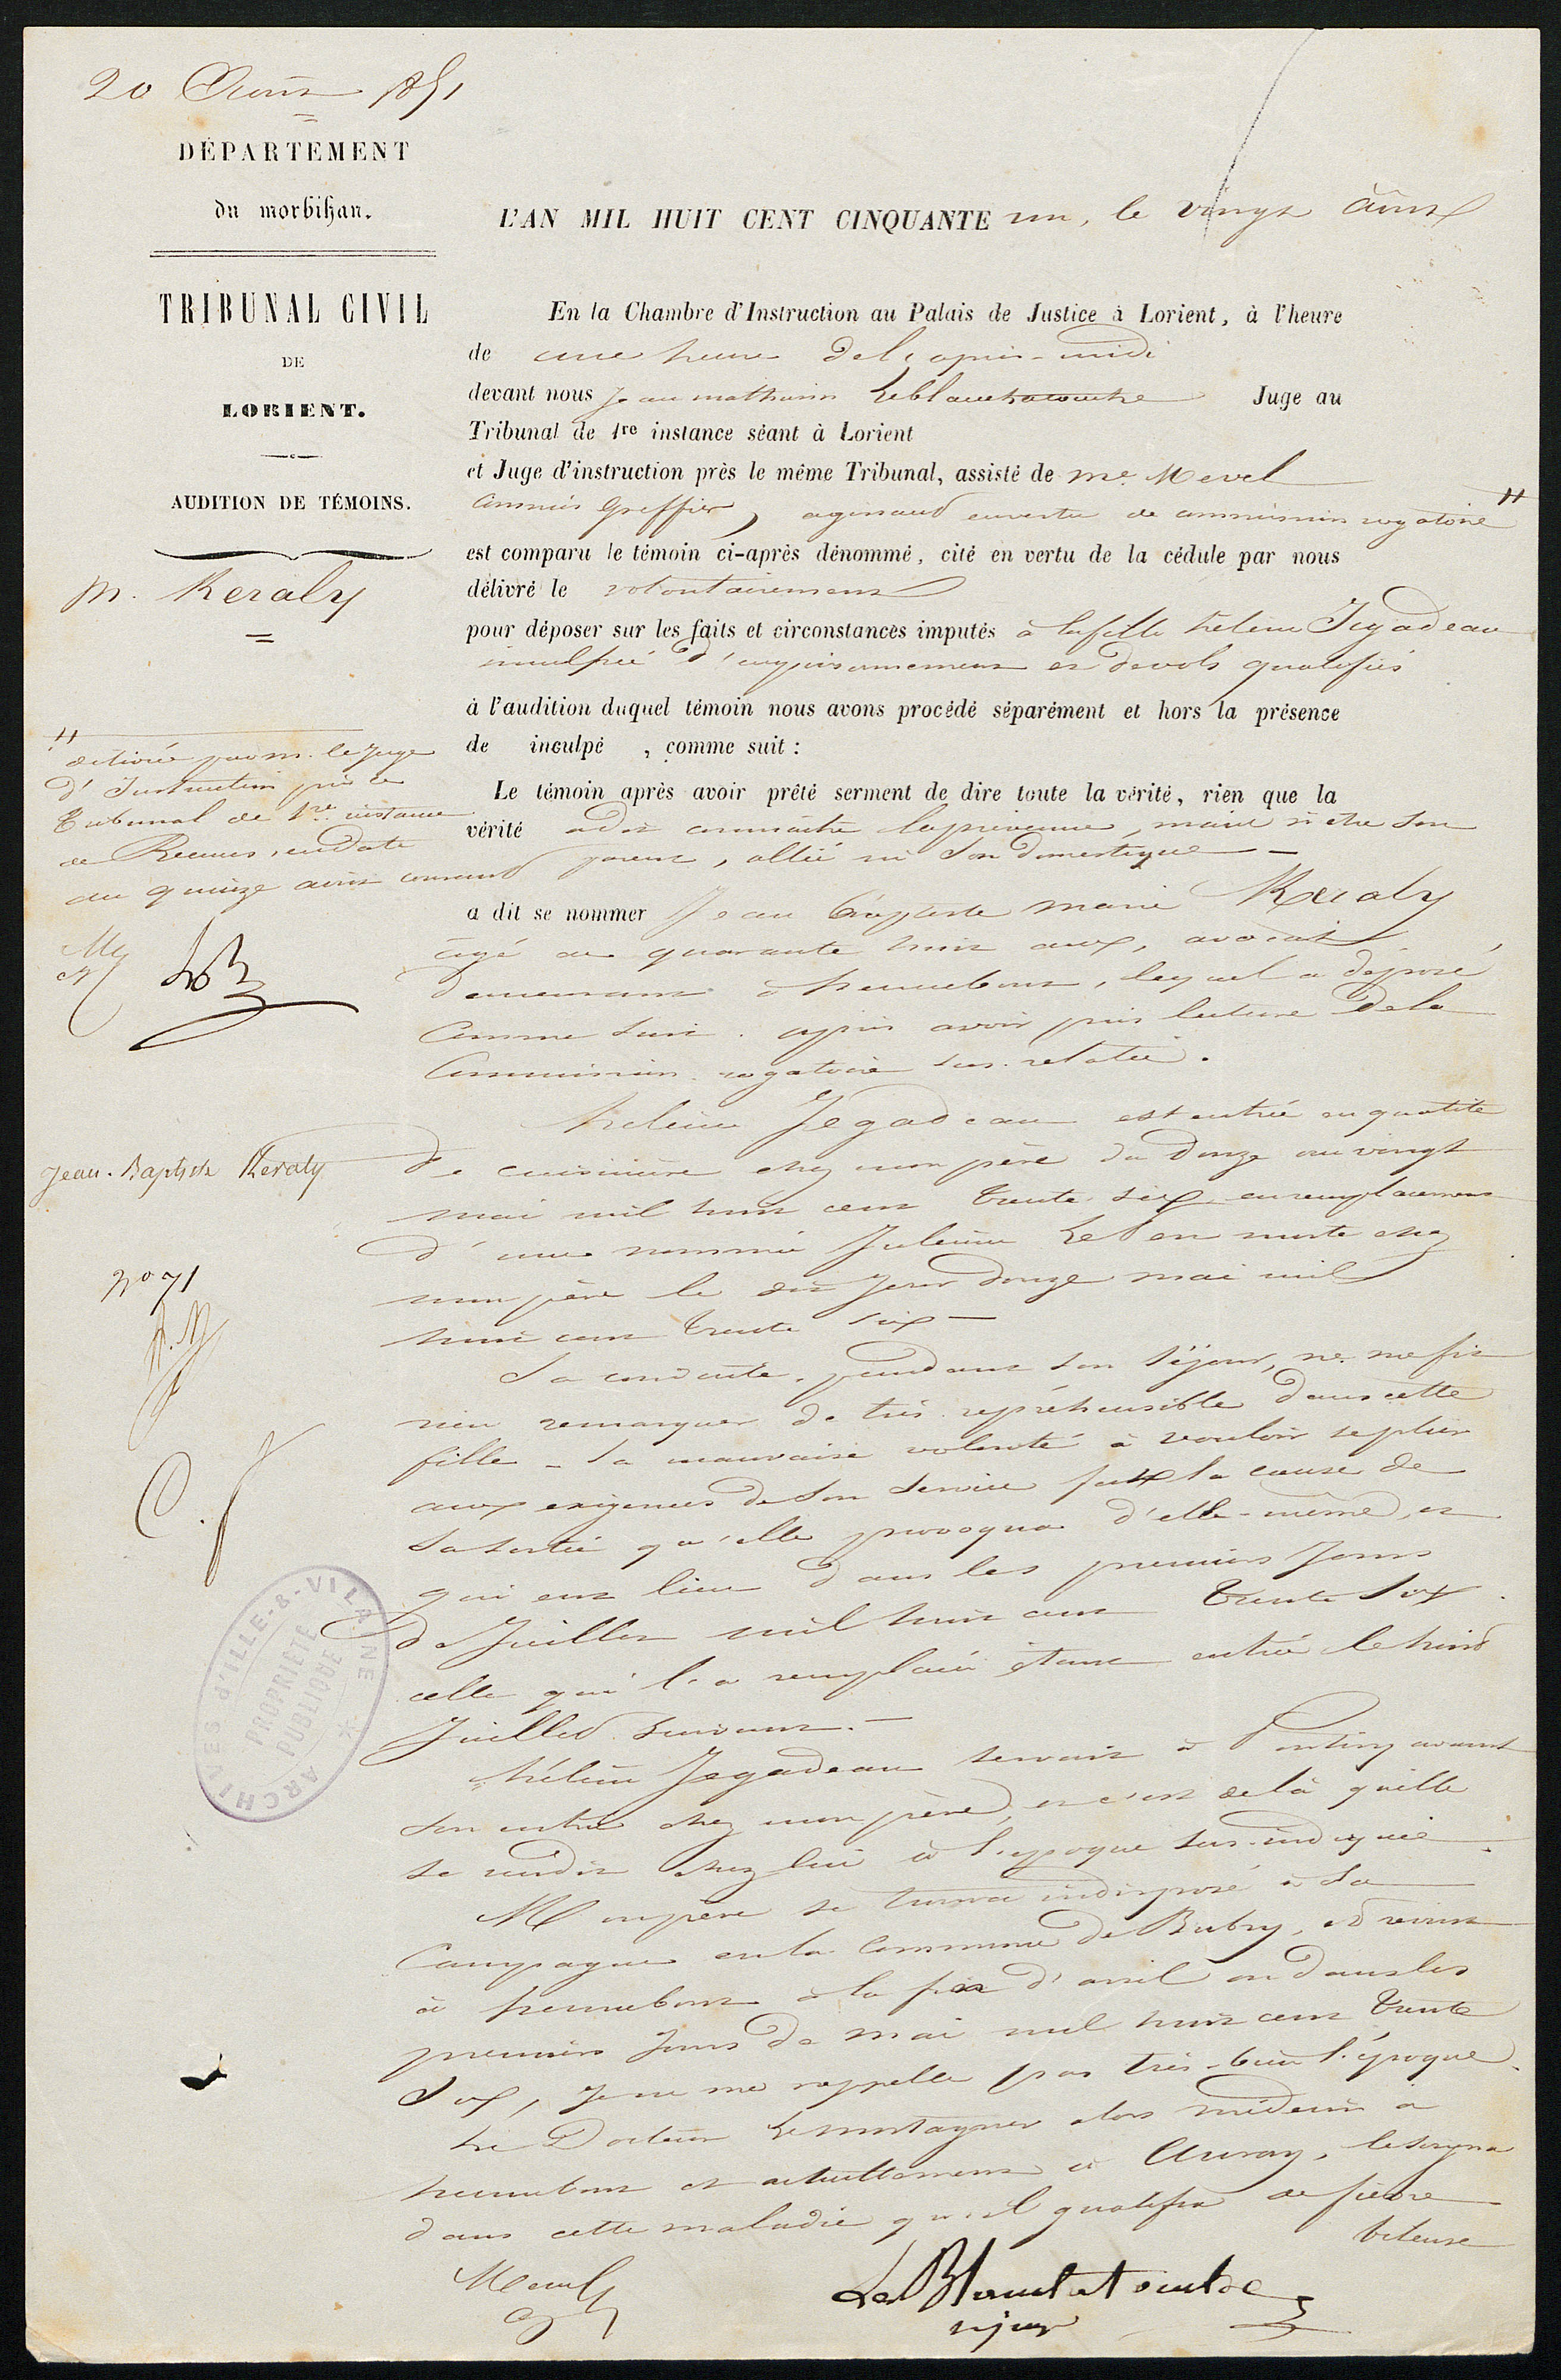 20 Août 1851
DÉPARTEMENT
du morbihan.
TRIBUNAL CIVIL
DE
LORIENT.
AUDITION DE TÉMOINS.
M. Keraly
" délivrée par m. le juge
d'Instruction près le
Tribunal de 1re instance
de Rennes, en date
du quinze août courant
Jean-Baptiste Keraly
No 71
C. f
L'AN MIL HUIT CENT CINQUANTE un, le vingt août
En la Chambre d'Instruction au Palais de Justice à Lorient, à l'heure
de une heure de l'après-midi
devant nous jean mathurin Leblanchatouche Juge au
Tribunal de 1re instance séant à Lorient
et Juge d'instruction près le même Tribunal, assisté de me. Mevel
commis Greffier, agissant en vertu de commission rogatoire "
est comparu le témoin ci-après dénommé, cité en vertu de la cédule par nous
délivré le volontairement
pour déposer sur les faits et circonstances imputés à la fille hélène Jegadeau
inculpée d'empoisonnement et de vols qualifiés
à l'audition duquel témoin nous avons procédé séparément et hors la présence
de inculpé , comme suit :
Le témoin après avoir prêté serment de dire toute la vérité, rien que la
vérité a dit connaitre la prévenue, mais n'etre son
parent, allié ni son domestique —
a dit se nommer Jean Baptiste marie Keraly
âgé de quarante huit ans, avocat
demeurant à hennebont, lequel a déposé
comme suit. après avoir pris lecture de la
Commission rogatoire sus-relatée.
hélène Jegadeau est entrée en qualité
de cuisinière chez mon père du douze au vingt
mai mil huit cent trente six en remplacement
d'une nommée Julienne morte chez
mon père le dit jour douze mai mil
huit cent trente six —
Sa conduite, pendant son séjour, ne me fit
rien remarquer de très répréhensible dans cette
fille - Sa mauvaise volonté à vouloir se plier
aux exigences de son service fut la cause de
sa sortie qu'elle provoqua d'elle-même, et
qui eut lieu dans les premiers jours
de Juillet mil huit cent trente six
celle qui l'a remplacée étant entrée le huit
juillet suivant. —
hélène Jegadeau servait à Pontivy avant
son entrée chez mon père, et c'est de là qu'elle
se rendit chez lui à l'époque sus-indiquée.
Mon père se trouva indisposé à sa
Campagne en la Commune de Bubry, et revint
à hennebont à la fin d'avril ou dans les
premiers jours de mai mil huit cent trente
Six, je ne me rappelle pas très-bien l'époque.
Le Docteur Lemontagner alors médecin à
hennebont et actuellement à Auray, le soigna
dans cette maladie qu'il qualifia de fièvre
bileuse
Mevel
Le Blanchatouche
ARCHIVES d'ILLE-&-VILAINE
PROPRIÉTÉ
PUBLIQUE